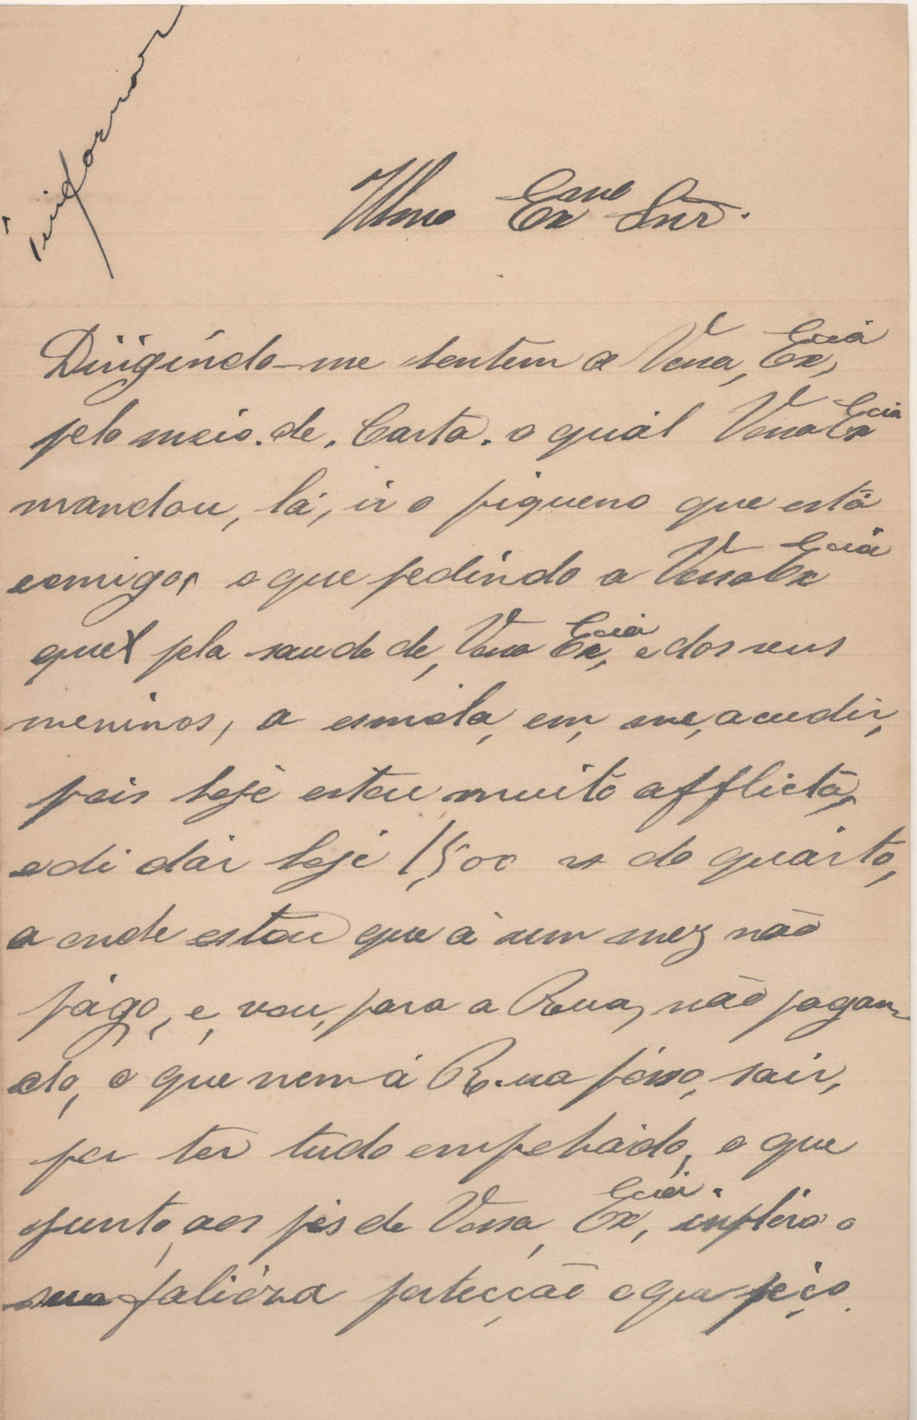 informar
Illmo Exmo Snr.
Dirigindo-me hontem a Vossa, Excia,
pelo meio. de. Carta. o quál Vossa Excia
mandou, lá, ir o piqueno que está
comigo, o que pedíndo a Vossa Excia
que pela saude de, Vossa Excia, e dos seus
meninos, a esmóla, em, me, acudir,
pois hojé estou muitó afflictã,
e di dár hojé 1,500 rs do quárto,
a onde estou que á um mez não
págo, e, vou, para a Rua, não pagan-
do, o que nem á Rua pósso, sair,
por ter tudo empehádo, o que
junto, aos pés de Vossa, Excia, implóro a
sua valióza portecção o que péço.